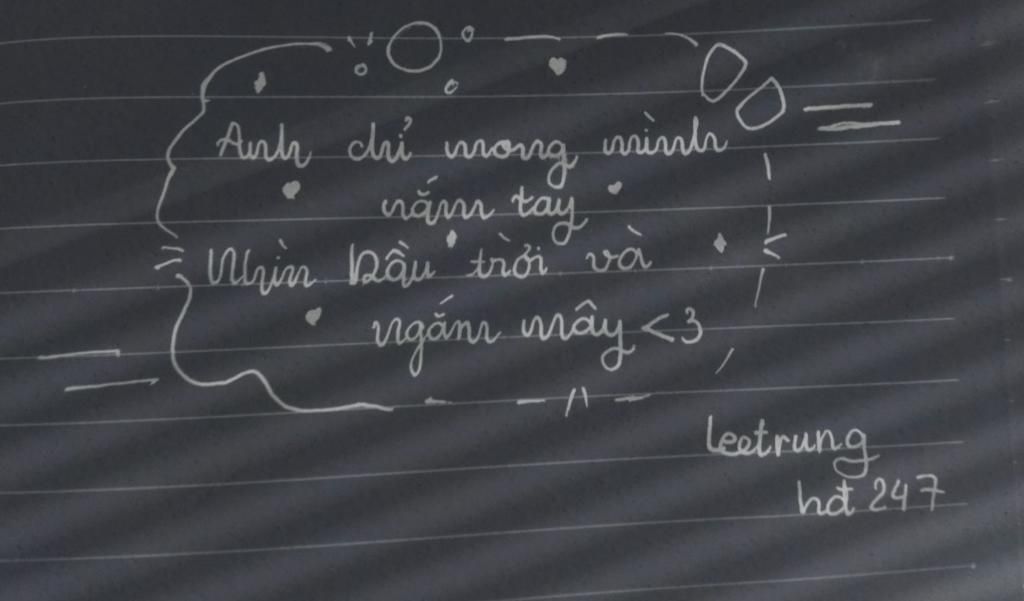 Anh chỉ mong mình
nắm tay
Nhìn bầu trời và
ngắm mây <3
leetrung
hđ 247